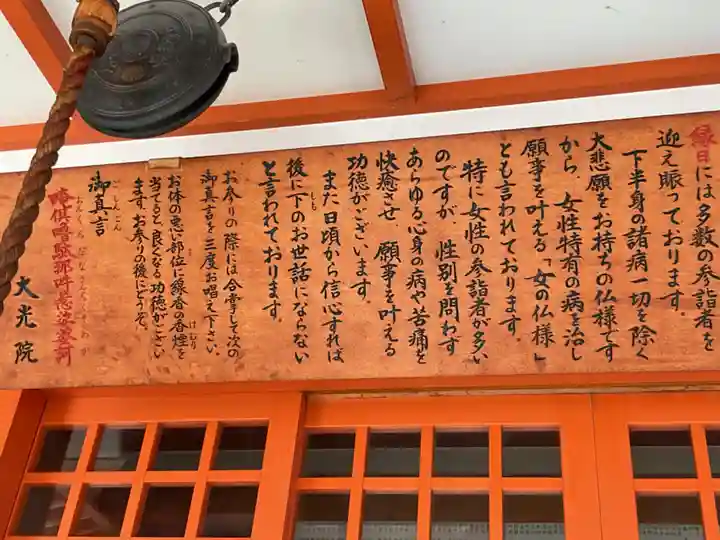 縁日には多数の参詣者を
迎え賑っております。
下半身の諸病一切を除く
大悲願をお持ちの仏様です
から、女性特有の病を治し
願事を叶える「女の仏様」
とも言われております。
特に女性の参詣者が多い
のですが、性別を問わず
あらゆる心身の病や苦痛を
快癒させ、願事を叶える
功徳がございます。
また日頃から信心すれば
後に下のお世話にならない
しも
と言われております。
お参りの際には合掌して次の
御真言を三度お唱え下さい。
お体の悪い部位に線香の香煙を
けむり
当てると良くなる功徳がござい
ます。お参りの後にどうぞ。
御真言
ごしんごん
大光院